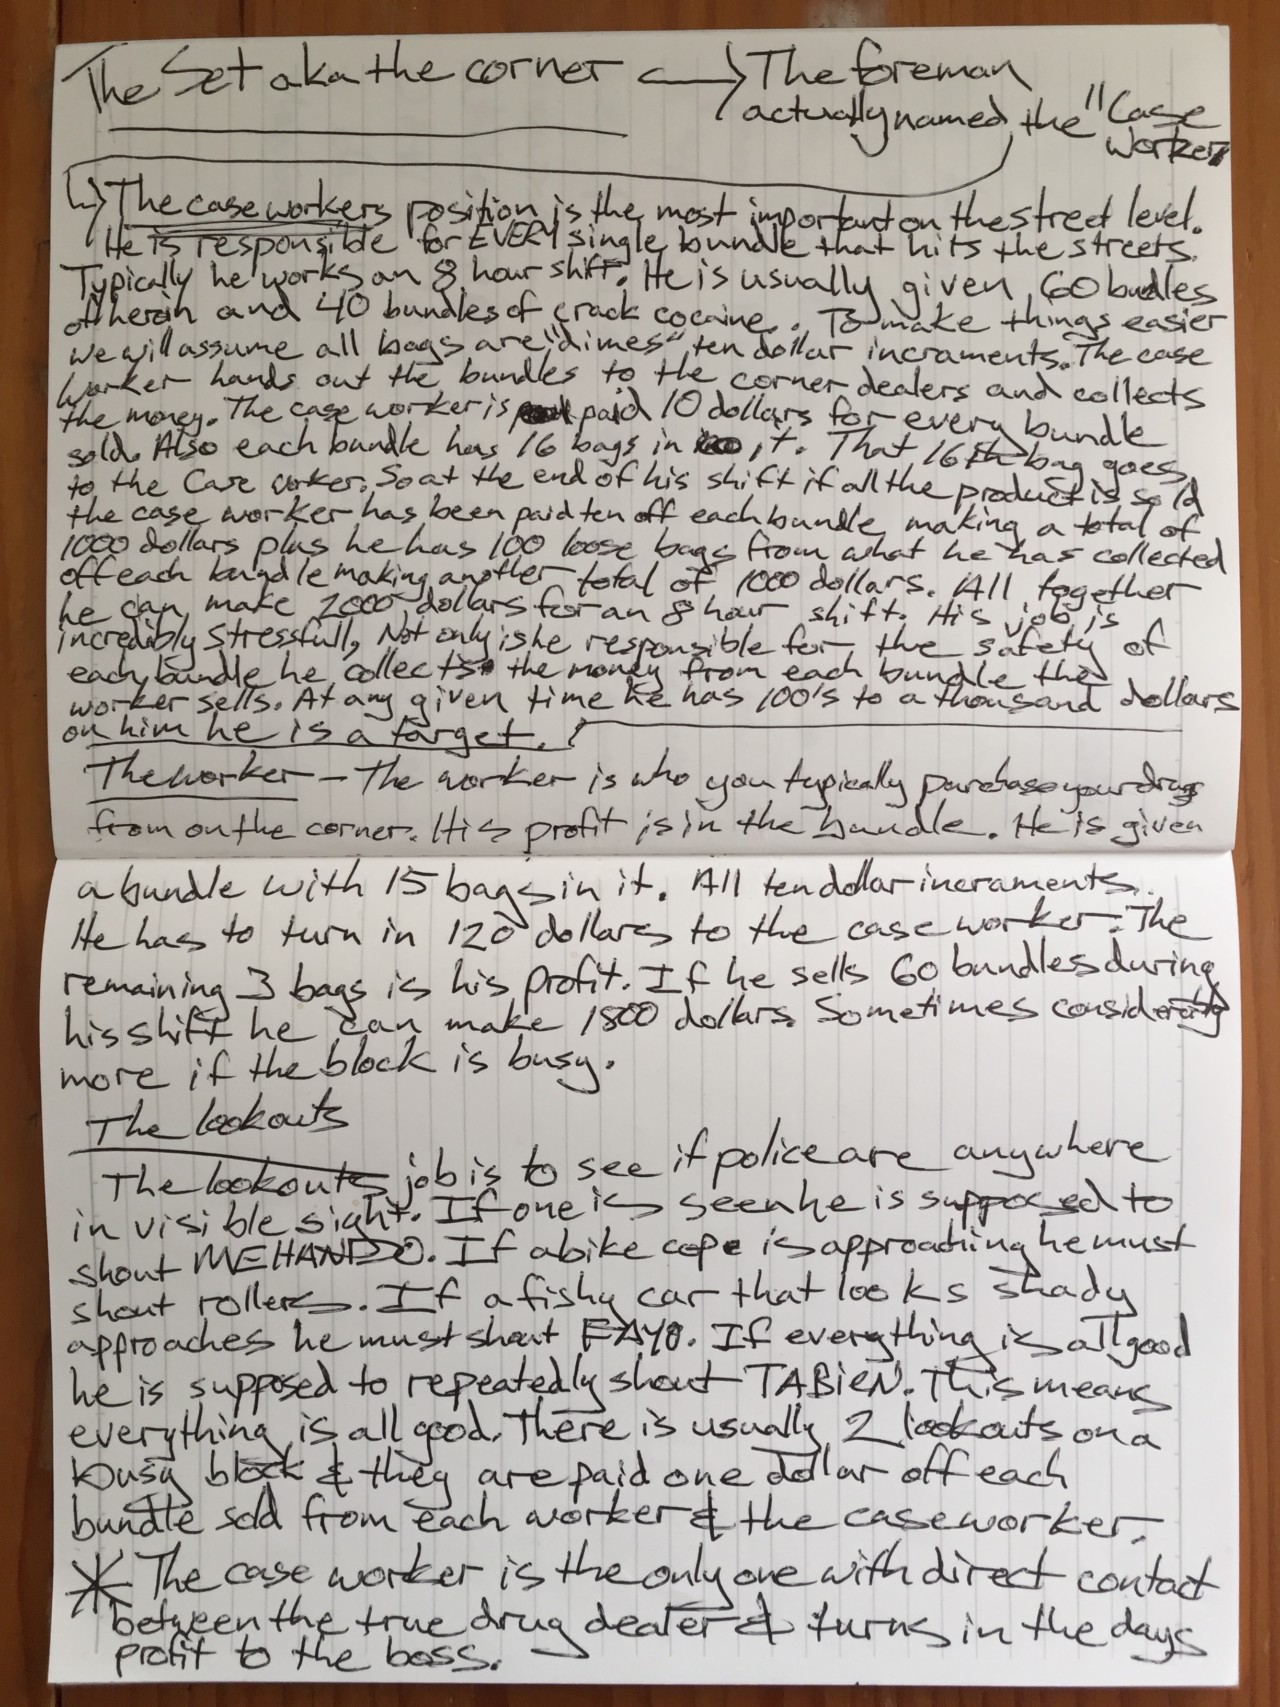 The Set aka the corner → The foreman
actually named the "Case
worker
↳ The case workers position is the most important on the street level.
He is responsible for EVERY single bundle that hits the streets.
Typically he works an 8 hour shift. He is usually given 60 bundles
of heroin and 40 bundles of crack cocaine.. To make things easier
we will assume all bags are "dimes" ten dollar incraments. The case
worker hands out the bundles to the corner dealers and collects
the money. The case worker is paid 10 dollars for every bundle
sold. Also each bundle has 16 bags in it. That 16th bag goes
to the Case worker. So at the end of his shift if all the product is sold
the case worker has been paid ten off each bundle making a total of
1000 dollars plus he has 100 loose bags from what he has collected
off each bundle making another total of 1000 dollars. All together
he can make 2000 dollars for an 8 hour shift. His job is
incredibly stressfull, Not only is he responsible for the safety of
each bundle he collects the money from each bundle the
worker sells. At any given time he has 100's to a thousand dollars
on him he is a target.
The worker - The worker is who you typically purchase your drugs
from on the corner. His profit is in the bundle. He is given
a bundle with 15 bags in it. All ten dollar incraments.
He has to turn in 120 dollars to the case worker. The
remaining 3 bags is his profit. If he sells 60 bundles during
his shift he can make 1800 dollars. Sometimes considerably
more if the block is busy.
The lookouts
The lookouts job is to see if police are anywhere
in visible sight. If one is seen he is supposed to
shout MEHANDO. If a bike cop is approaching he must
shout rollers. If a fishy car that looks shady
approaches he must shout FAYO. If everything is all good
he is supposed to repeatedly shout TABIEN. This means
everything is all good. There is usually 2 lookouts on a
busy block & they are paid one dollar off each
bundle sold from each worker & the caseworker.
* The case worker is the only one with direct contact
between the true drug dealer & turns in the days
profit to the boss.